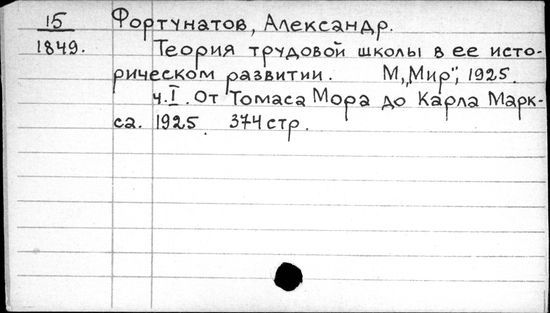 15 Фортунатов, Александр.
1849. Теория трудовой школы в ее исто-
рическом развитии. М, "Мир", 1925.
ч. I. От Томаса Мора до Карла Марк-
са. 1925. 374 стр.